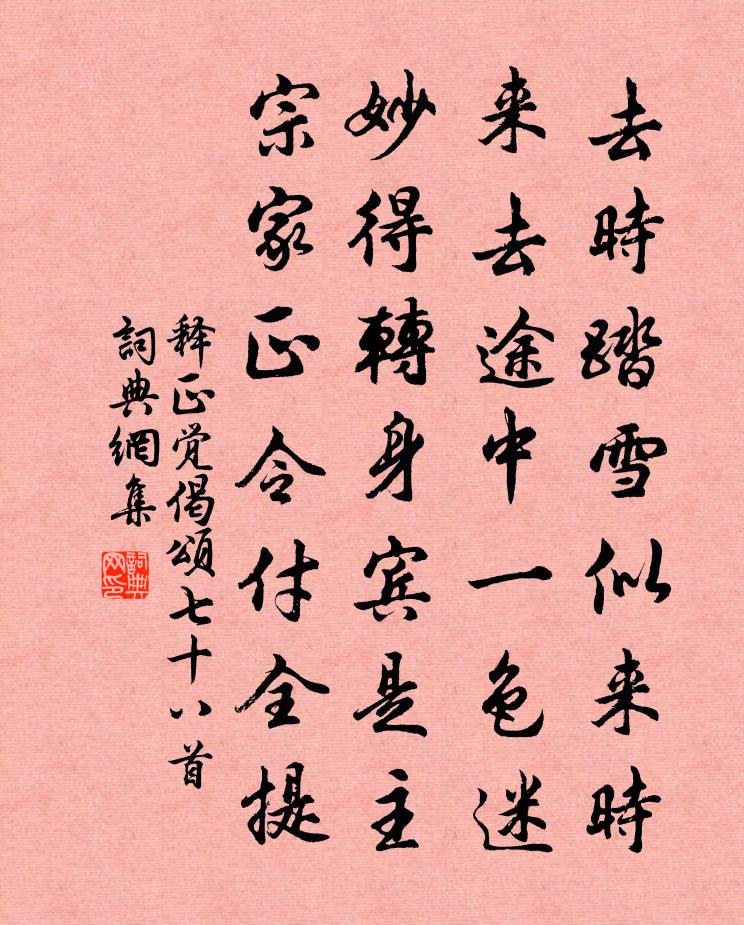 去時踏雪似来時
来去途中一色迷
妙得轉身宾是主
宗家正令付全提
释正觉偈頌七十八首
詞典網集
詞典网印